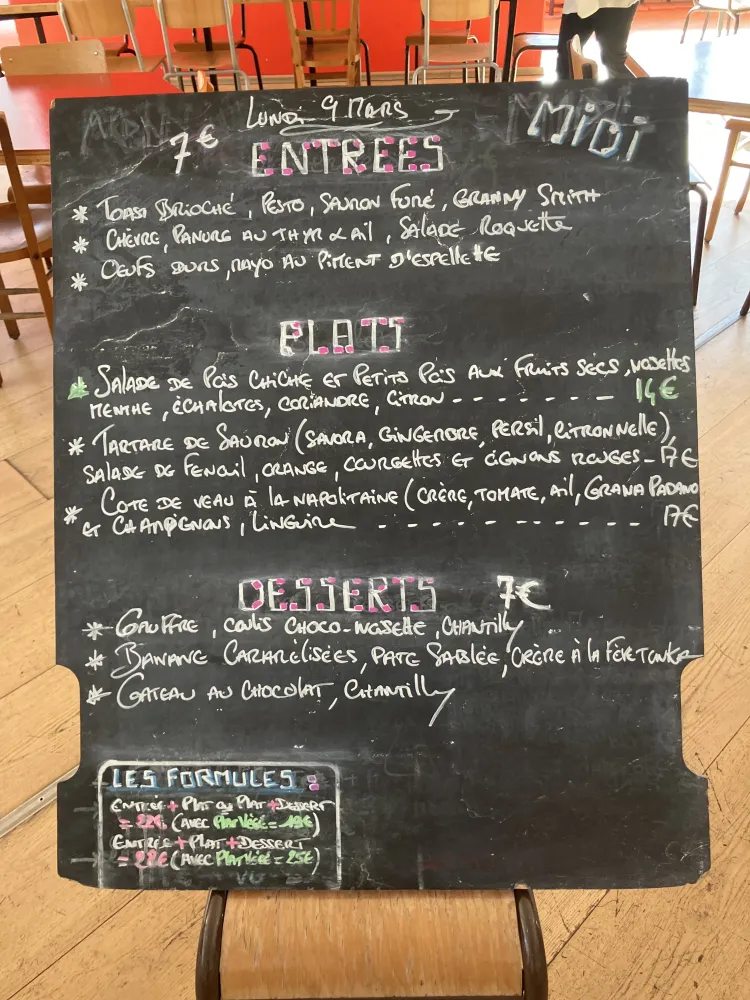 LUNDI 9 MARS
MIDI
7€ ENTREES
* TOAST BRIOCHÉ, PESTO, SAUMON FUMÉ, GRANNY SMITH
* CHÈVRE, PANURE AU THYM & AIL, SALADE ROQUETTE
* OEUFS DURS, MAYO AU PIMENT D'ESPELETTE
PLATS
* SALADE DE POIS CHICHE ET PETITS POIS AUX FRUITS SECS, NOISETTES
MENTHE, ÉCHALOTES, CORIANDRE, CITRON - - - - - - - 14€
* TARTARE DE SAUMON (SAVORA, GINGEMBRE, PERSIL, CITRONNELLE),
SALADE DE FENOUIL, ORANGE, COURGETTES ET OIGNONS ROUGES - 17€
* COTE DE VEAU À LA NAPOLITAINE (CRÈME, TOMATE, AIL, GRANA PADANO
ET CHAMPIGNONS, LINGUINE - - - - - - - - - - - 17€
DESSERTS 7€
* GAUFFRE, COULIS CHOCO-NOISETTE, CHANTILLY
* BANANE CARAMÉLISÉES, PATE SABLÉE, CRÈME À LA FÈVE TONKA
* GATEAU AU CHOCOLAT, CHANTILLY
LES FORMULES :
ENTRÉE + PLAT OU PLAT + DESSERT
= 22€ (AVEC PLAT VÉGÉ = 19€)
ENTRÉE + PLAT + DESSERT
= 28€ (AVEC PLAT VÉGÉ = 25€)